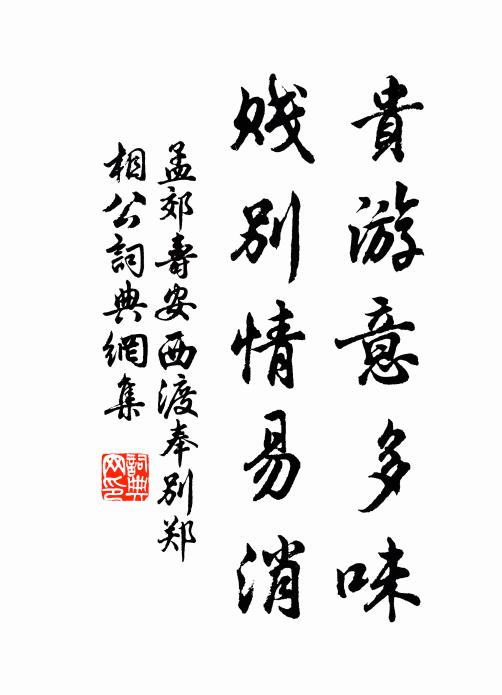 貴游意多味
賤別情易消
孟郊壽安西渡奉別郑
相公詞典網集
詞典
网印